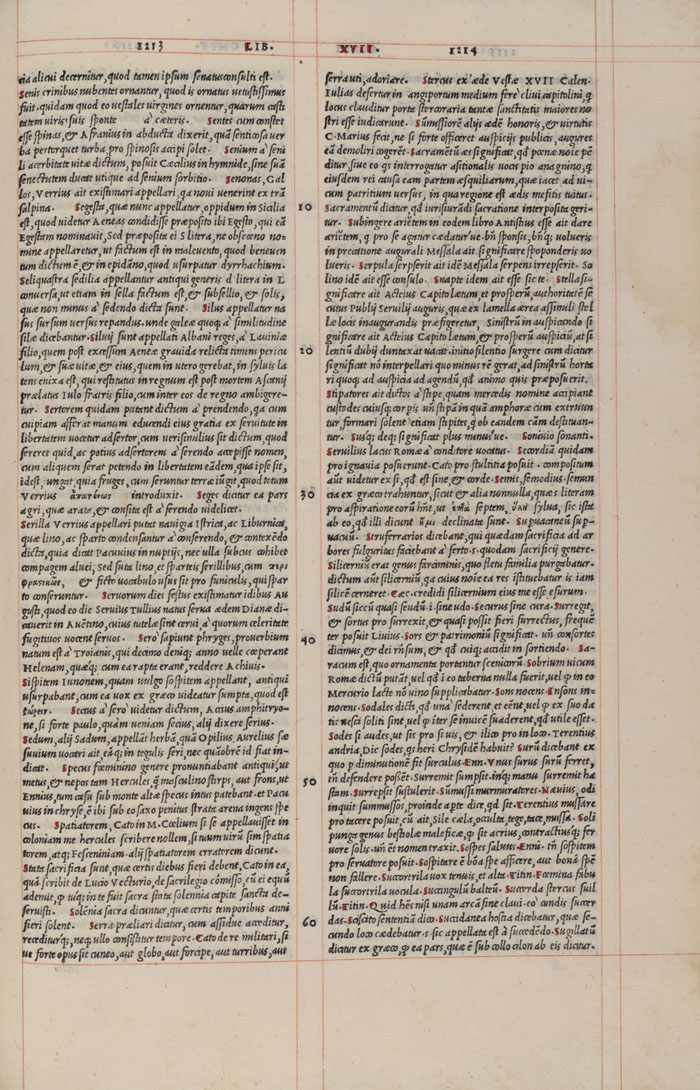 1213 LIB. XVII. 1214
cia alicui decernitur, quod tamen ipsum senatusconsulti est.
Senis crinibus nubentes ornantur, quod is ornatus uetustissimus
fuit. quidam quod eo uestales uirgines ornentur, quarum casti
tatem uiris suis sponte à cæteris. Sentes cum constet
esse spinas, & Afranius in abducta dixerit, quā senticosa uer
ba pertorquet turba, pro spinosis accipi solet. Senium à seni
li acerbitate uitæ dictum, posuit Cæcilius in hymnide, sine suā
senectutem ducat utique ad senium sorbitio. Senonas, Gal
los, Verrius ait existimari appellari, qa noui uenerint ex trā
salpina. Segesta, quæ nunc appellatur, oppidum in Sicilia
est, quod uidetur Aeneas condidisse præposito ibi Egesto, qui eā
Egestam nominauit, Sed præposita ei S litera, ne obscœno no=
mine appellaretur, ut factum est in maleuento, quod beneuen
tum dictum ē, & in epidāno, quod usurpatur dyrrhachium.
Seliquastra sedilia appellantur antiqui generis d litera in L
conuersa, ut etiam in sella factum est, & subsellio, & solis,
quæ non minus à sedendo dicta sunt. Silus appellatur na
sus sursum uersus repandus. unde galeæ quoq; à similitudine
silæ dicebantur. Siluij sunt appellati Albani reges, à Lauiniæ
filio, quem post excessum Aeneæ grauida relicta timens pericu
lum, & suæ uitæ & eius, quem in utero gerebat, in syluis la
tens enixa est, qui restitutus in regnum est post mortem Ascanij
prælatus Iulo fratris filio, cum inter eos de regno ambigere=
tur. Sertorem quidam putant dictum à prendendo, qa cum
cuipiam afferat manum educendi eius gratia ex seruitute in
libertatem uocetur adsertor, cum uerisimilius sit dictum, quod
sereret quid, ac potius adsertorem à serendo accepisse nomen,
cum aliquem serat petendo in libertatem eādem, qua ipse sit,
idest iungat, quia fruges, cum seruntur terræ iūgāt, quod totum
Verrius introduxit. Seges dicitur ea pars
agri, quæ arata, & consita est à serendo uidelicet.
Serilla Verrius appellari putat nauigia Istrica, ac Liburnica,
quæ lino, ac sparto condensantur à conserendo, & contexēdo
dicta, quia dicat Pacuuius in nuptijs, nec ulla subcus cohibet
compagem aluei, Sed suta lino, et sparteis serilibus, cum περι
φραστικῶς, & ficto uocabulo usus sit pro funiculis, qui spar
to conseruntur. Seruorum dies festus existimatur idibus Au
gusti, quod eo die Seruius Tullius natus serua ædem Dianæ di=
cauerit in Auētino, cuius tutelæ sint cerui, à quorum celeritate
fugitiuos uocent seruos. Sero sapiunt phryges, prouerbium
natum est à Troianis, qui decimo deniq; anno uelle cœperant
Helenam, quæq; cum ea rapta erant, reddere Achiuis.
Sispitem Iunonem, quam uulgo sospitem appellant, antiqui
usurpabant, cum ea uox ex græco uideatur sumpta, quod est
σώζειν. Secus à sero uidetur dictum, Accius amphitryo=
ne, si forte paulo, quām ueniam secius, alij dixere serius.
Sedum, alij Sadum, appellāt herbā, quā Opilius Aurelius sæ
suuium uocari ait, eāq; in tegulis seri, nec quāobrē id fiat in=
dicat. Specus fœminino genere pronuntiabant antiqui, ut
metus, & nepos tam Hercules q̃ masculino stirps, aut frons, ut
Ennius, tum casu sub monte altæ specus intus patebant. et Pacu
uius in chryse, ē ibi sub eo saxo penitus strata arena ingens spe
cus. Spatiatorem, Cato in M. Cœlium si se appellauisset in
coloniam me hercules scribere nollem, si tuum uirū sim spatia
torem, atq; Fesceniniam. alij spatiatorem erratorem dicunt.
Stata sacrificia sunt, quæ certis diebus fieri debent, Cato in ea,
quā scribit de Lucio Veturio, de sacrilegio cōmisso, cū ei equū
ademit, q̃ tuq; in te fuit sacra stata solennia capite sancta de=
seruisti. Solēnia sacra dicuntur, quæ certis temporibus anni
fieri solent. Serra præliari dicitur, cum assidue acceditur,
recediturq;, neq; ullo consistitur tempore. Cato de re militari, si
ue forte opus sit cuneo, aut globo, aut forcipe, aut turribus, aut
10
20
30
40
50
60
serra uti, adoriare. Stercus ex æde Vestæ XVII Calen.
Iulias defertur in angiportum medium fere cliui capitolini, q
locus clauditur porta stercoraria tantæ sanctitatis maiores no
stri esse iudicarunt. Sūmissiorē alijs ædē honoris, & uirtutis
C. Marius fecit, ne si forte officeret auspicijs publicis, augures
eā demoliri cogerēt. Sacramētū æs significat, qđ pœnæ noīe pē
ditur, siue eo qs interrogatur asitionalis uocis pio anagnino, q
eiusdem rei causa eam partem æsquiliarum, quæ iacet ad ui=
cum patritium uersus, in qua regione est ædis mefitis tuitus.
Sacramentū dicitur, qđ iurisiurādi sacratione interposita geri=
tur. Subingere arietem in eodem libro Antistius esse ait dare
arietem, q pro se agatur cædatur ue. bñ sponsis, bñq; uolueris
in precatione augurali Messala ait significare spoponderis uo
lueris. Serpula serpserit ait idē Messala serpens irrepserit. So
lino idē ait esse consulo. Suapte idem ait esse sic te. Stella si=
gnificare ait Acteius Capito lætum, et prosperū, authoritatē se
cutus Publij Seruilij auguris, quæ ex lamella ærea assimilis stel
læ locis inaugurandis præfigeretur. Sinistrū in auspicando si
gnificare ait Acteius Capito lætum, & prosperū auspiciū, at si
lentiū dubij duntaxat uacat. initio silentio surgere cum dicitur
significat nō interpellari quo minus rē gerat, ad sinistrū horta
ri quoq; ad auspicia ad agendū, qđ animo quis præposuerit.
Stipatores ait dictos à stipe, quam mercedis nomine accipiant
custodes cuiusq; corpis. uñ stipā in quā amphoræ cum extruun
tur, formari solent etiam stipites, q ob eandem cām destituan=
tur. Susq; deq; significat plus minus'ue. Soniuio sonanti.
Seruilius lacus Romæ à conditore uocatus. Secordiā quidam
pro ignauia posuerunt. Cato pro stultitia posuit. compositum
aūt uidetur ex si, qđ est sine, & corde. Semis, semodius, semun
cia ex græco trahuntur, sicut & alia nonnulla, quæ s literam
pro aspiratione eorū hñt, ut ἑπτὰ septem, ὕλη sylua, sic ista
ab eo, qđ illi dicunt ἥμι declinata sunt. Supuacaneū sup=
uacuū. Struferrarios dicebant, qui quædam sacrificia ad ar
bores fulguritas faciebant à ferto. s. quodam sacrificij genere.
Silicerniū erat genus farciminis, quo fletu familia purgabatur.
dictum aūt silicerniū, qa cuius noīe ea res istituebatur is iam
silicē cerneret. Cæc. credidi silicernium eius me esse esurum.
Sudū siccū quasi seudū. i. sine udo. Securus sine cura. Surregit,
& sortus pro surrexit, & quasi possit fieri surrectus, frequē
ter posuit Liuius. Sors & patrimoniū significat. uñ consortes
dicimus, & dei rñsum, & qđ cuiq; accidit in sortiendo. Sa=
racum est, quo ornamenta portantur scenicorū. Sobrium uicum
Romæ dictū putāt, uel qđ i eo taberna nulla fuerit, uel q̃ in eo
Mercurio lacte nō uino supplicabatur. Sons nocens. Insons in=
nocens. Sodales dicti, qđ unā sederent, et eēnt, uel q̃ ex suo da
tis uesci soliti sint, uel q̃ iter se inuicē suaderent, qđ utile esset.
Sodes si audes, ut sis pro si uis, & ilico pro in loco. Terentius
andria, Dic sodes, qs heri Chrysidē habuit? Surū dicebant ex
quo p diminutionē fit surculus. Enn. Vnus surus surū ferret,
tñ defendere possēt. Surremit sumpsit. inq; manu surremit ha
stam. Surrepsit sustulerit. Sumussi murmuratores. Næuius, odi
inquit summussos, proinde apte dice, qđ sit. Terentius mussare
pro tacere posuit, cū ait, Sile cæla, occulta, tege, tace, mussa. Soli
punga genus bestiolæ maleficæ, q̃ sit acrius, contractiusq; fer
uore solis. uñ ēt nomen traxit. Sospes saluus. Enni. tñ sospitem
pro seruatore posuit. Sospitare ē bōa spe afficere, aut bonā spē
non fallere. Succrotila uox tenuis, et alta. Titin. Fœmina fabu
la succrotila uocula. Succingulū balteū. Sucerda stercus suil
lū. Titin. Quid hēs nisi unam arcā sine claui. eo cōndis sucer
das. Sciscito sententiā dico. Succidanea hostia dicebatur, quæ se=
cundo loco cædebatur. s. sic appellata est à succedēdo. Sugillatū
dicitur ex græco, q̃ ea pars, quæ ē sub collo cilon ab eis dicitur.